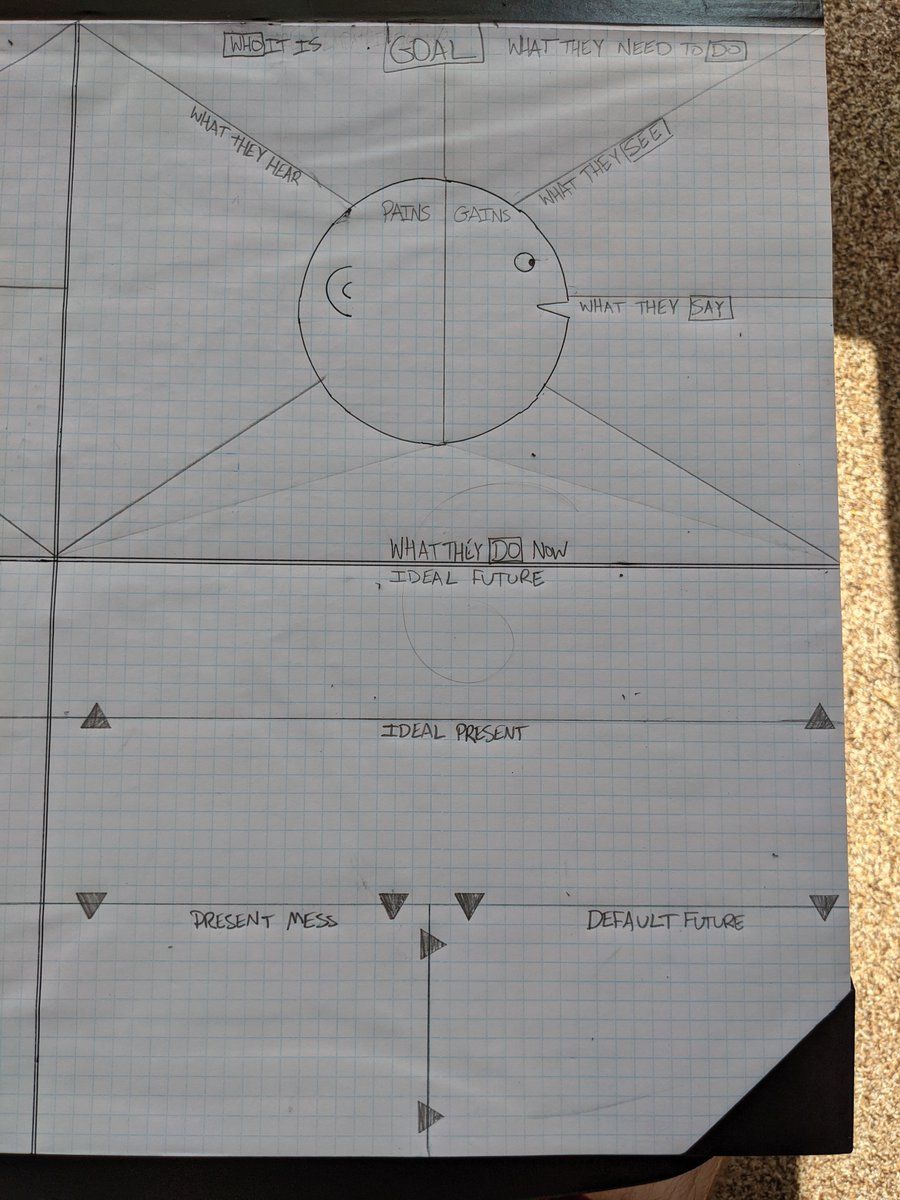 WHO IT IS
GOAL
WHAT THEY NEED TO DO
WHAT THEY HEAR
WHAT THEY SEE
PAINS
GAINS
WHAT THEY SAY
WHAT THEY DO NOW
IDEAL FUTURE
IDEAL PRESENT
PRESENT MESS
DEFAULT FUTURE